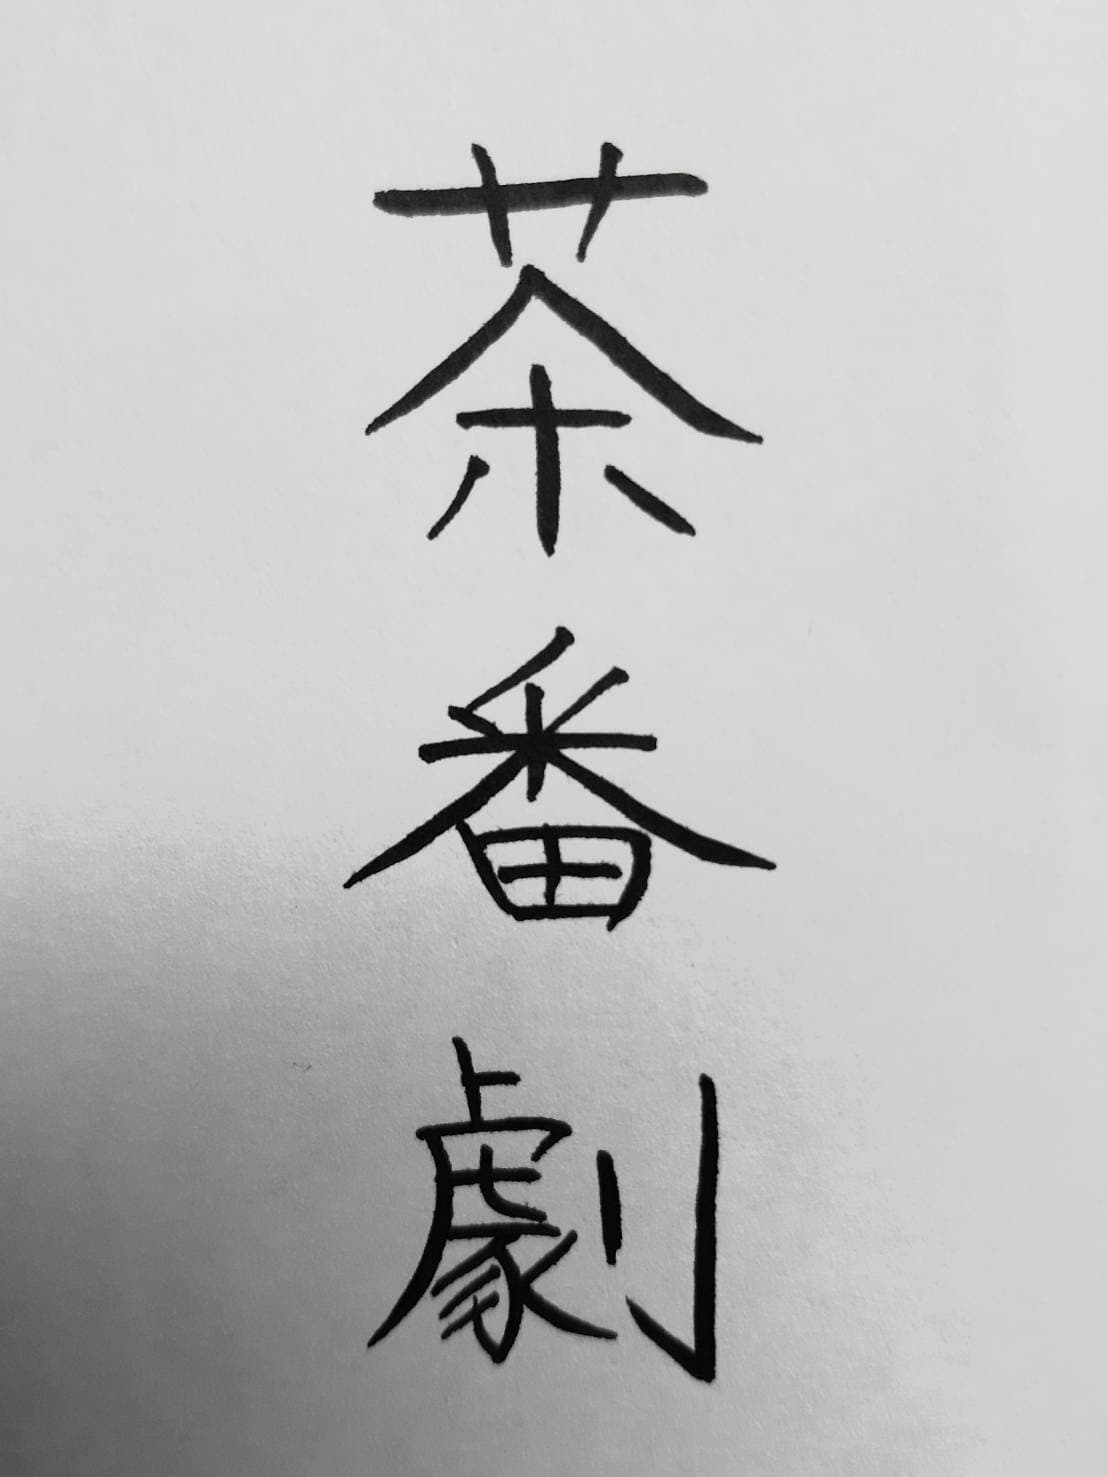 茶番劇